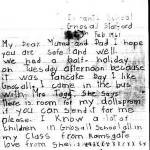 Infants School
Cross all Stafford
Feb 1941
My Dear Mum and Dad I hope
you are safe and well
we had a half holiday
on Tuesday afternoon because
it was Pancake Day I like
I come in the bus
with Mrs Tagg She says
There is room for my dolls pram
if you can send it for me
please I know a lot of
children in School all in
my Class from Ramsgate
love from Sheila xxxxxx